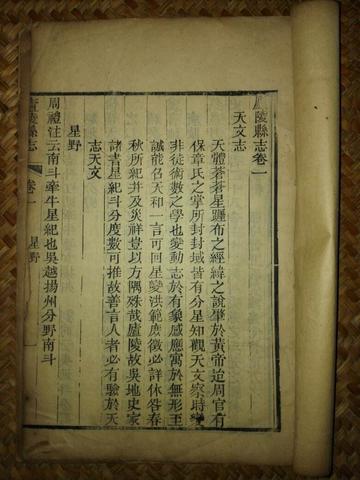 陵縣志卷一
天文志
天體蒼蒼星躔布之經緯之說肇於黃帝迨周官有
保章氏之掌所封封域皆有分星知觀天文察時變
非徒術數之學也變動志於有象感應寓於無形王
誠能召天和一言可回星變洪範庶徵必詳休咎春
秋所紀并及災祥豈以方隅殊哉廬陵故吳地史家
諸書星紀斗分度數可推故善言人者必有驗於天
志天文
星野
周禮注云南斗牽牛星紀也吳越揚州分野南斗
陵縣志
卷一
星野